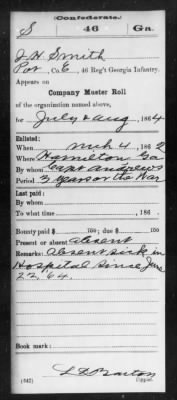 (Confederate.)
S 46 Ga.
J H Smith
Pvt, Co. C, 46 Reg't Georgia Infantry.
Appears on
Company Muster Roll
of the organization named above,
for July & Aug, 1864
Enlisted:
When Mch 4, 1862
Where Hamilton Ga
By whom Capt Andrews
Period 3 years or the War
Last paid:
By whom
To what time , 186 .
Bounty paid $ 100; due $ 100
Present or absent absent
Remarks: Absent sick in
Hospital since June
22, 64.
Book mark:
(642)
Copyist.